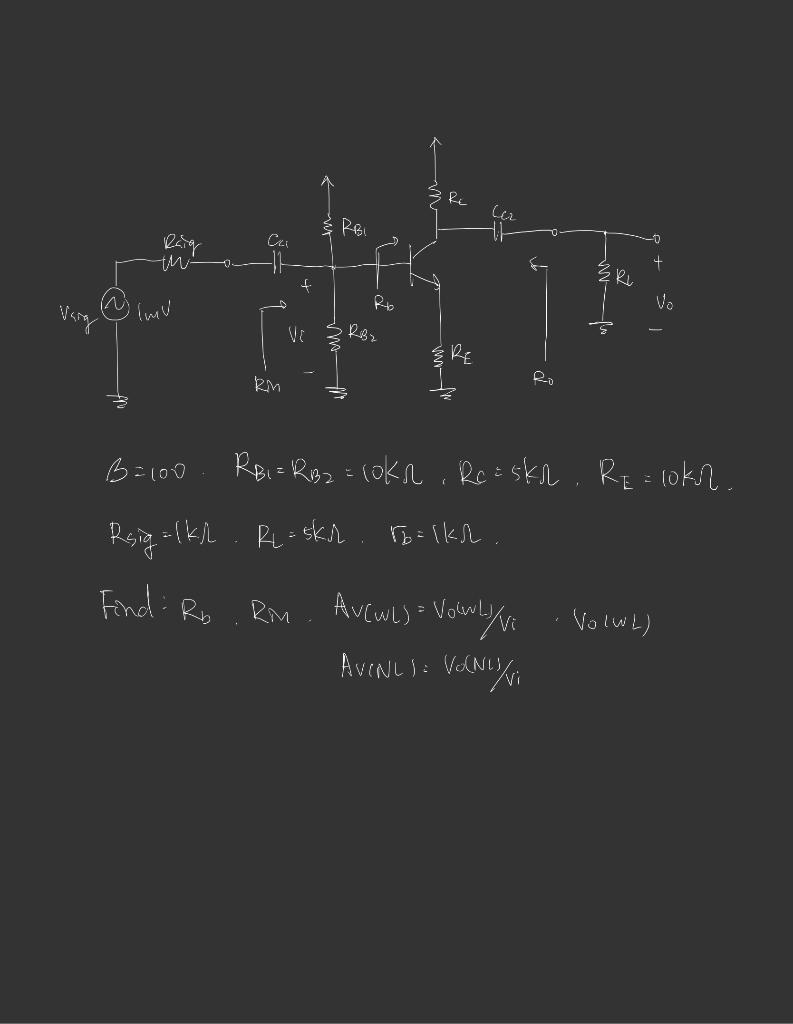 RC
CC2
RB1
Rsig
CC1
+
RL
+
Rb
Vsig
1mV
Vo
Vi
RB2
−
RE
−
Rin
Ro
β = 100 . RB1 = RB2 = 10kΩ , RC = 5kΩ , RE = 10kΩ .
Rsig = 1kΩ . RL = 5kΩ . rb = 1kΩ .
Find : Rb . Rin . AV(WL) = Vo(WL)/Vi . Vo(WL)
AV(NL) = Vo(NL)/Vi